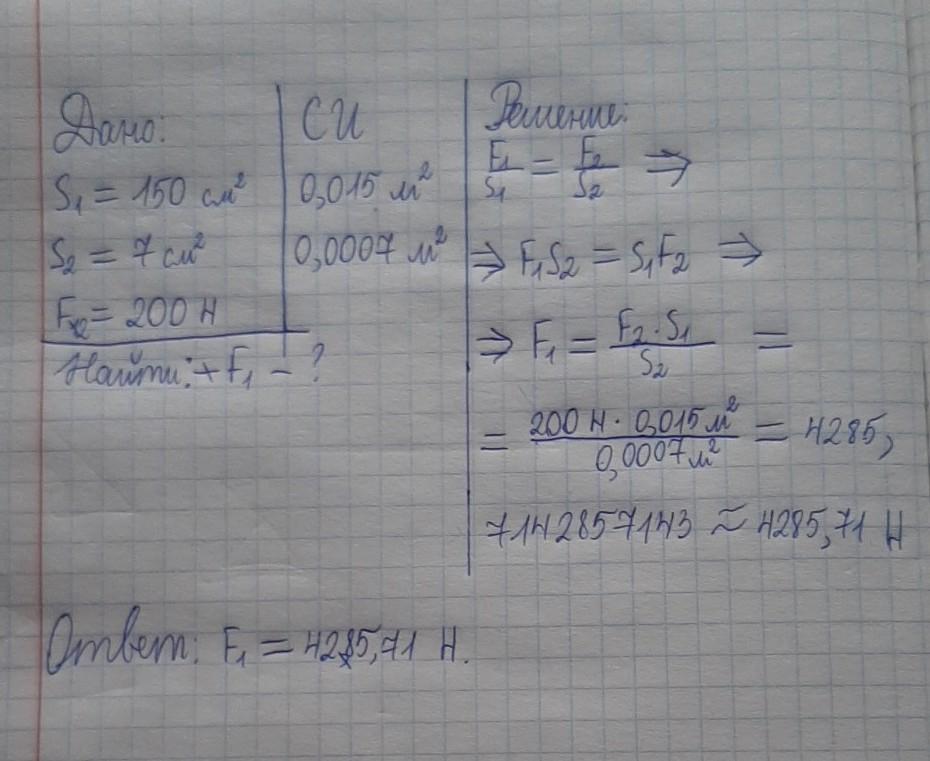 Дано:
S₁ = 150 см²
S₂ = 7 см²
F₂ = 200 Н
Найти: F₁ – ?
СИ
0,015 м²
0,0007 м²
Решение:
F₁/S₁ = F₂/S₂ ⇒
⇒ F₁S₂ = S₁F₂ ⇒
⇒ F₁ = F₂·S₁/S₂ =
= 200 Н · 0,015 м²/0,0007 м² = 4285,
7142857143 ≈ 4285,71 Н
Ответ: F₁ = 4285,71 Н.